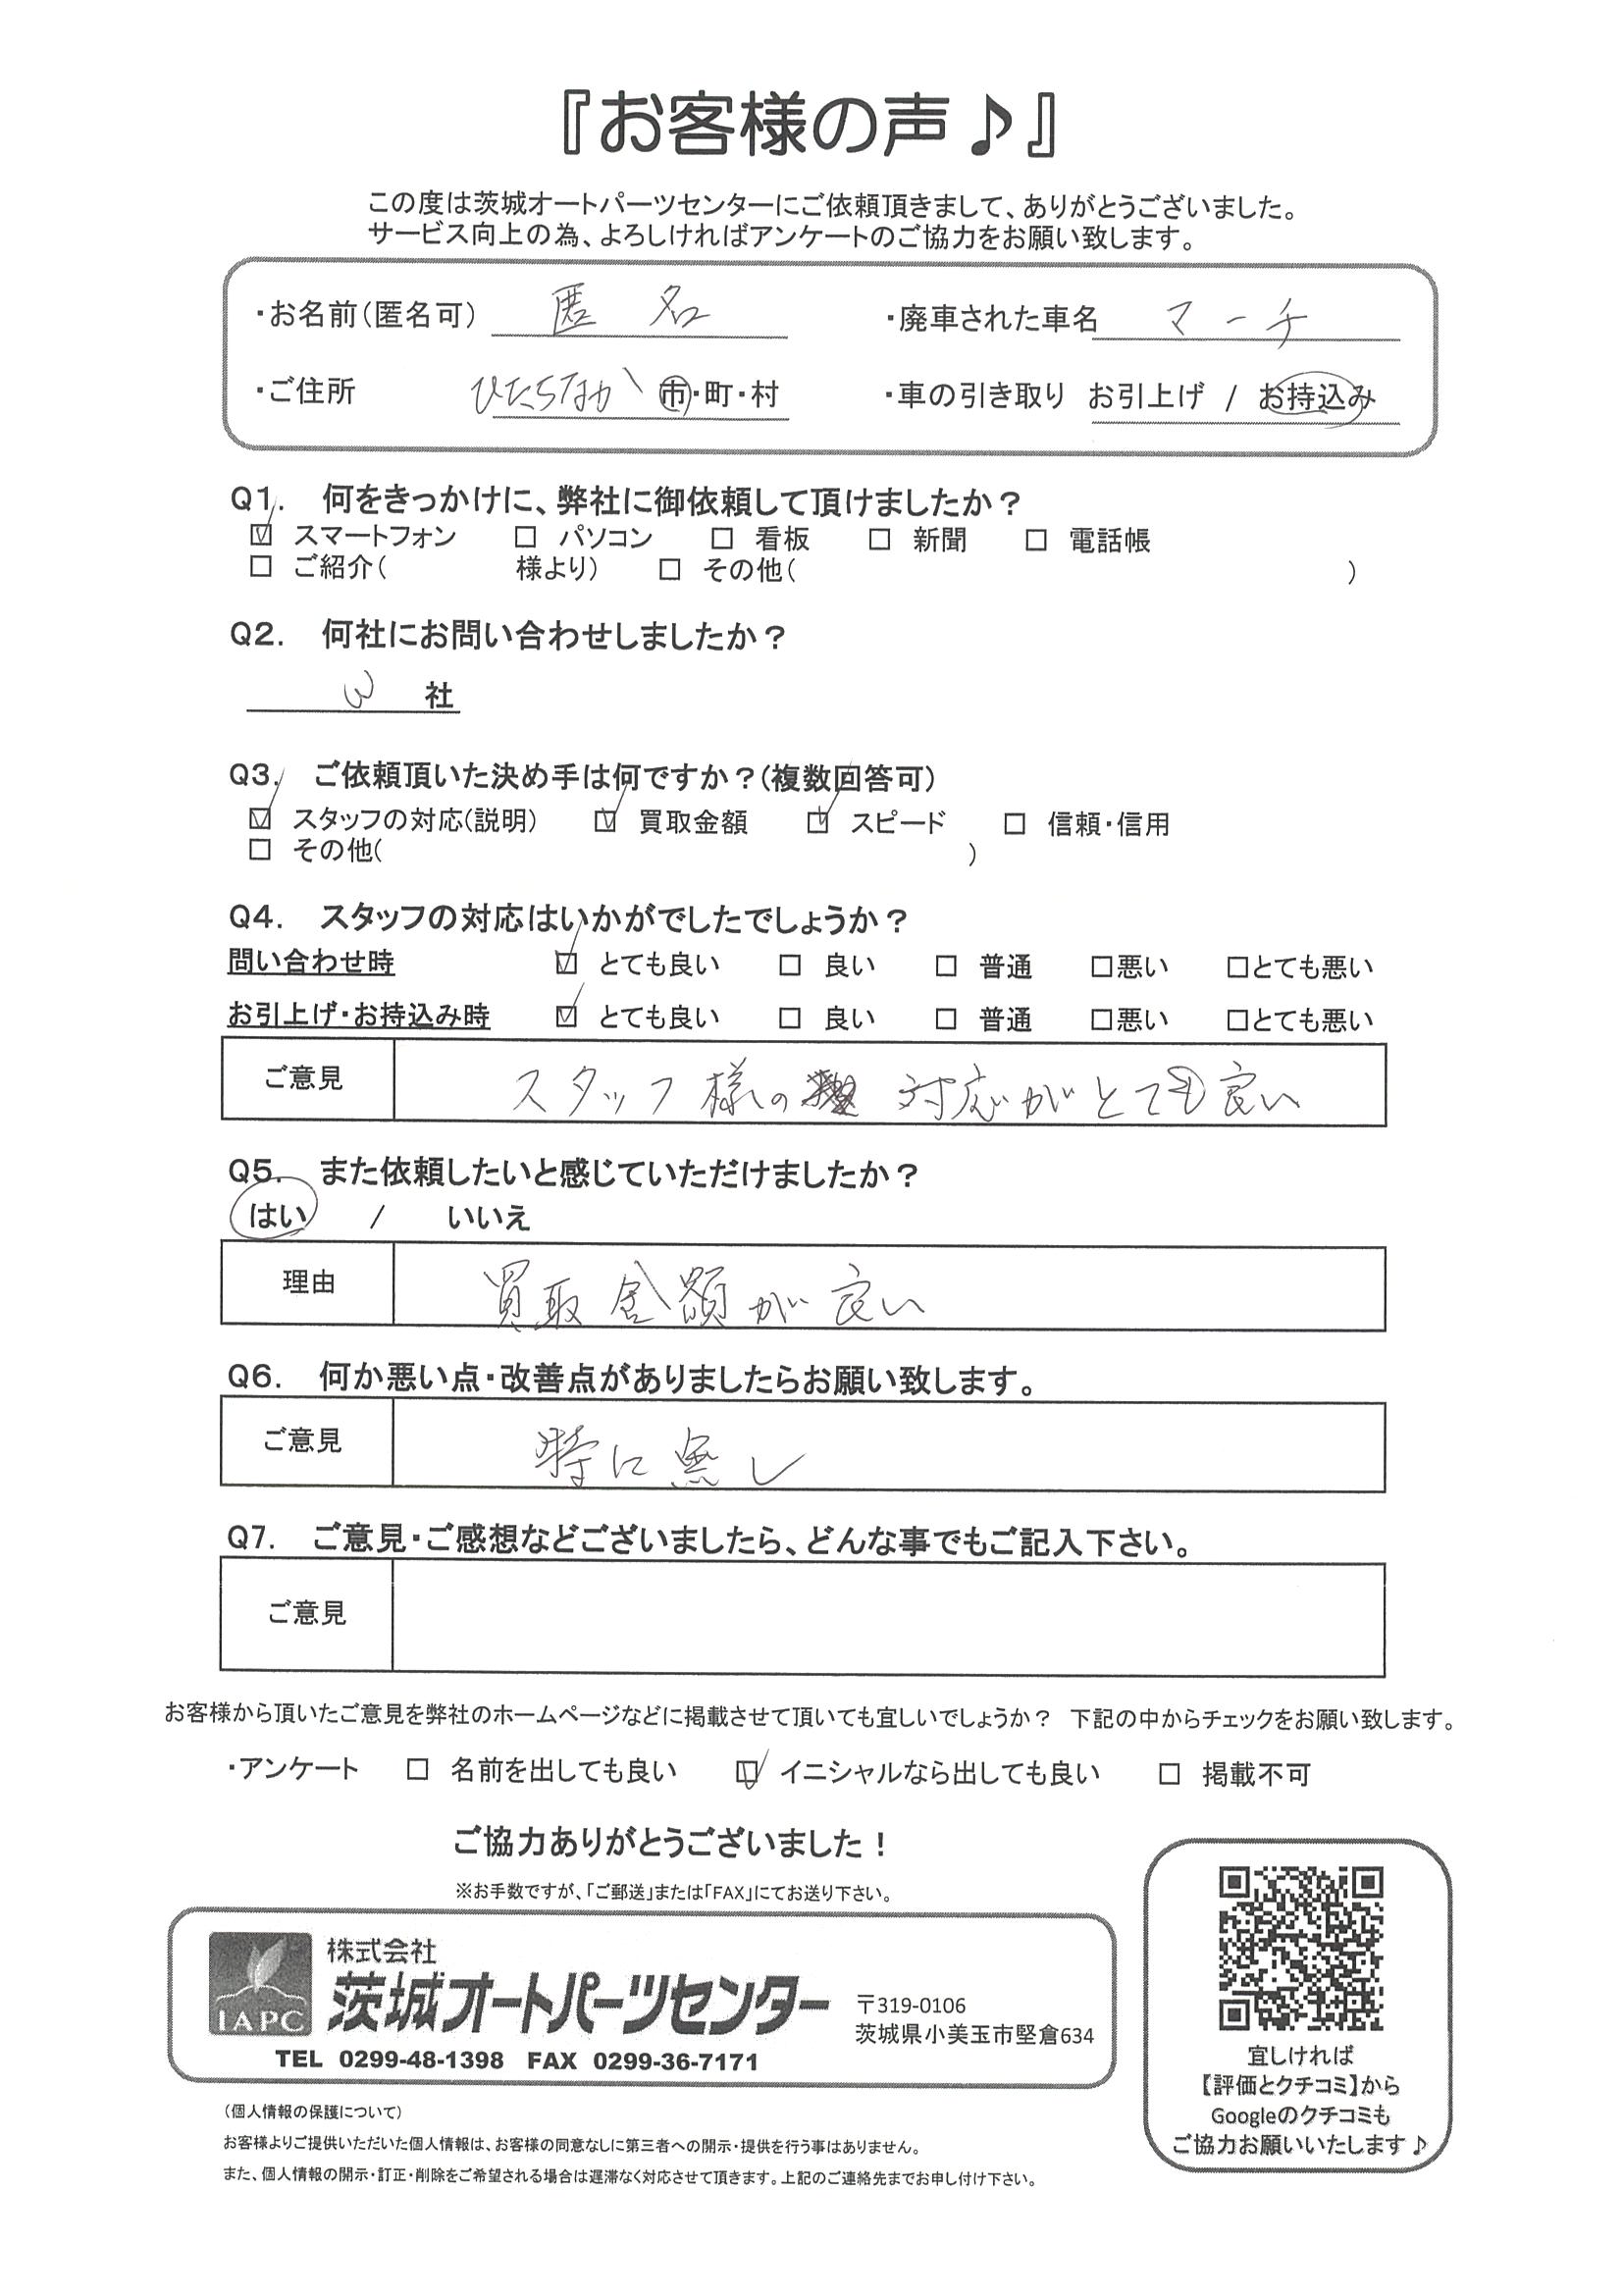 『お客様の声♪』
この度は茨城オートパーツセンターにご依頼頂きまして、ありがとうございました。
サービス向上の為、よろしければアンケートのご協力をお願い致します。
・お名前(匿名可) 匿名 ・廃車された車名 マーチ
・ご住所 ひたちなか 市・町・村 ・車の引き取り お引上げ / お持込み
Q1. 何をきっかけに、弊社に御依頼して頂けましたか？
☑ スマートフォン □ パソコン □ 看板 □ 新聞 □ 電話帳
□ ご紹介( 様より) □ その他( )
Q2. 何社にお問い合わせしましたか？
社
Q3. ご依頼頂いた決め手は何ですか？(複数回答可)
☑ スタッフの対応(説明) ☑ 買取金額 ☑ スピード □ 信頼・信用
□ その他( )
Q4. スタッフの対応はいかがでしたでしょうか？
問い合わせ時 ☑ とても良い □ 良い □ 普通 □悪い □とても悪い
お引上げ・お持込み時 ☑ とても良い □ 良い □ 普通 □悪い □とても悪い
ご意見 スタッフ様の 対応がとても良い
Q5. また依頼したいと感じていただけましたか？
はい / いいえ
理由 買取金額が良い
Q6. 何か悪い点・改善点がありましたらお願い致します。
ご意見 特に無し
Q7. ご意見・ご感想などございましたら、どんな事でもご記入下さい。
ご意見
お客様から頂いたご意見を弊社のホームページなどに掲載させて頂いても宜しいでしょうか？ 下記の中からチェックをお願い致します。
・アンケート □ 名前を出しても良い ☑ イニシャルなら出しても良い □ 掲載不可
ご協力ありがとうございました！
※お手数ですが、「ご郵送」または「FAX」にてお送り下さい。
IAPC
株式会社
茨城オートパーツセンター
〒319-0106
茨城県小美玉市堅倉634
TEL 0299-48-1398 FAX 0299-36-7171
宜しければ
【評価とクチコミ】から
Googleのクチコミも
ご協力お願いいたします♪
(個人情報の保護について)
お客様よりご提供いただいた個人情報は、お客様の同意なしに第三者への開示・提供を行う事はありません。
また、個人情報の開示・訂正・削除をご希望される場合は遅滞なく対応させて頂きます。上記のご連絡先までお申し付け下さい。